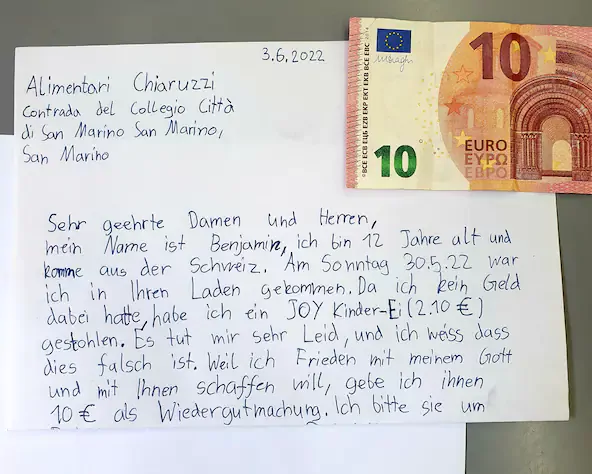 3.6.2022
Alimentari Chiaruzzi
Contrada del Collegio Città
di San Marino San Marino,
San Marino
Sehr geehrte Damen und Herren,
mein Name ist Benjamin, ich bin 12 Jahre alt und
komme aus der Schweiz. Am Sonntag 30.5.22 war
ich in Ihren Laden gekommen. Da ich kein Geld
dabei hatte, habe ich ein JOY Kinder-Ei (2.10 €)
gestohlen. Es tut mir sehr Leid, und ich weiss dass
dies falsch ist. Weil ich Frieden mit meinem Gott
und mit Ihnen schaffen will, gebe ich ihnen
10 € als Wiedergutmachung. Ich bitte sie um
10
EURO
ΕΥΡΩ
ЕВРО
10
BCE ECB ЕЦБ EZB EKP EKT EKB BCE EBC